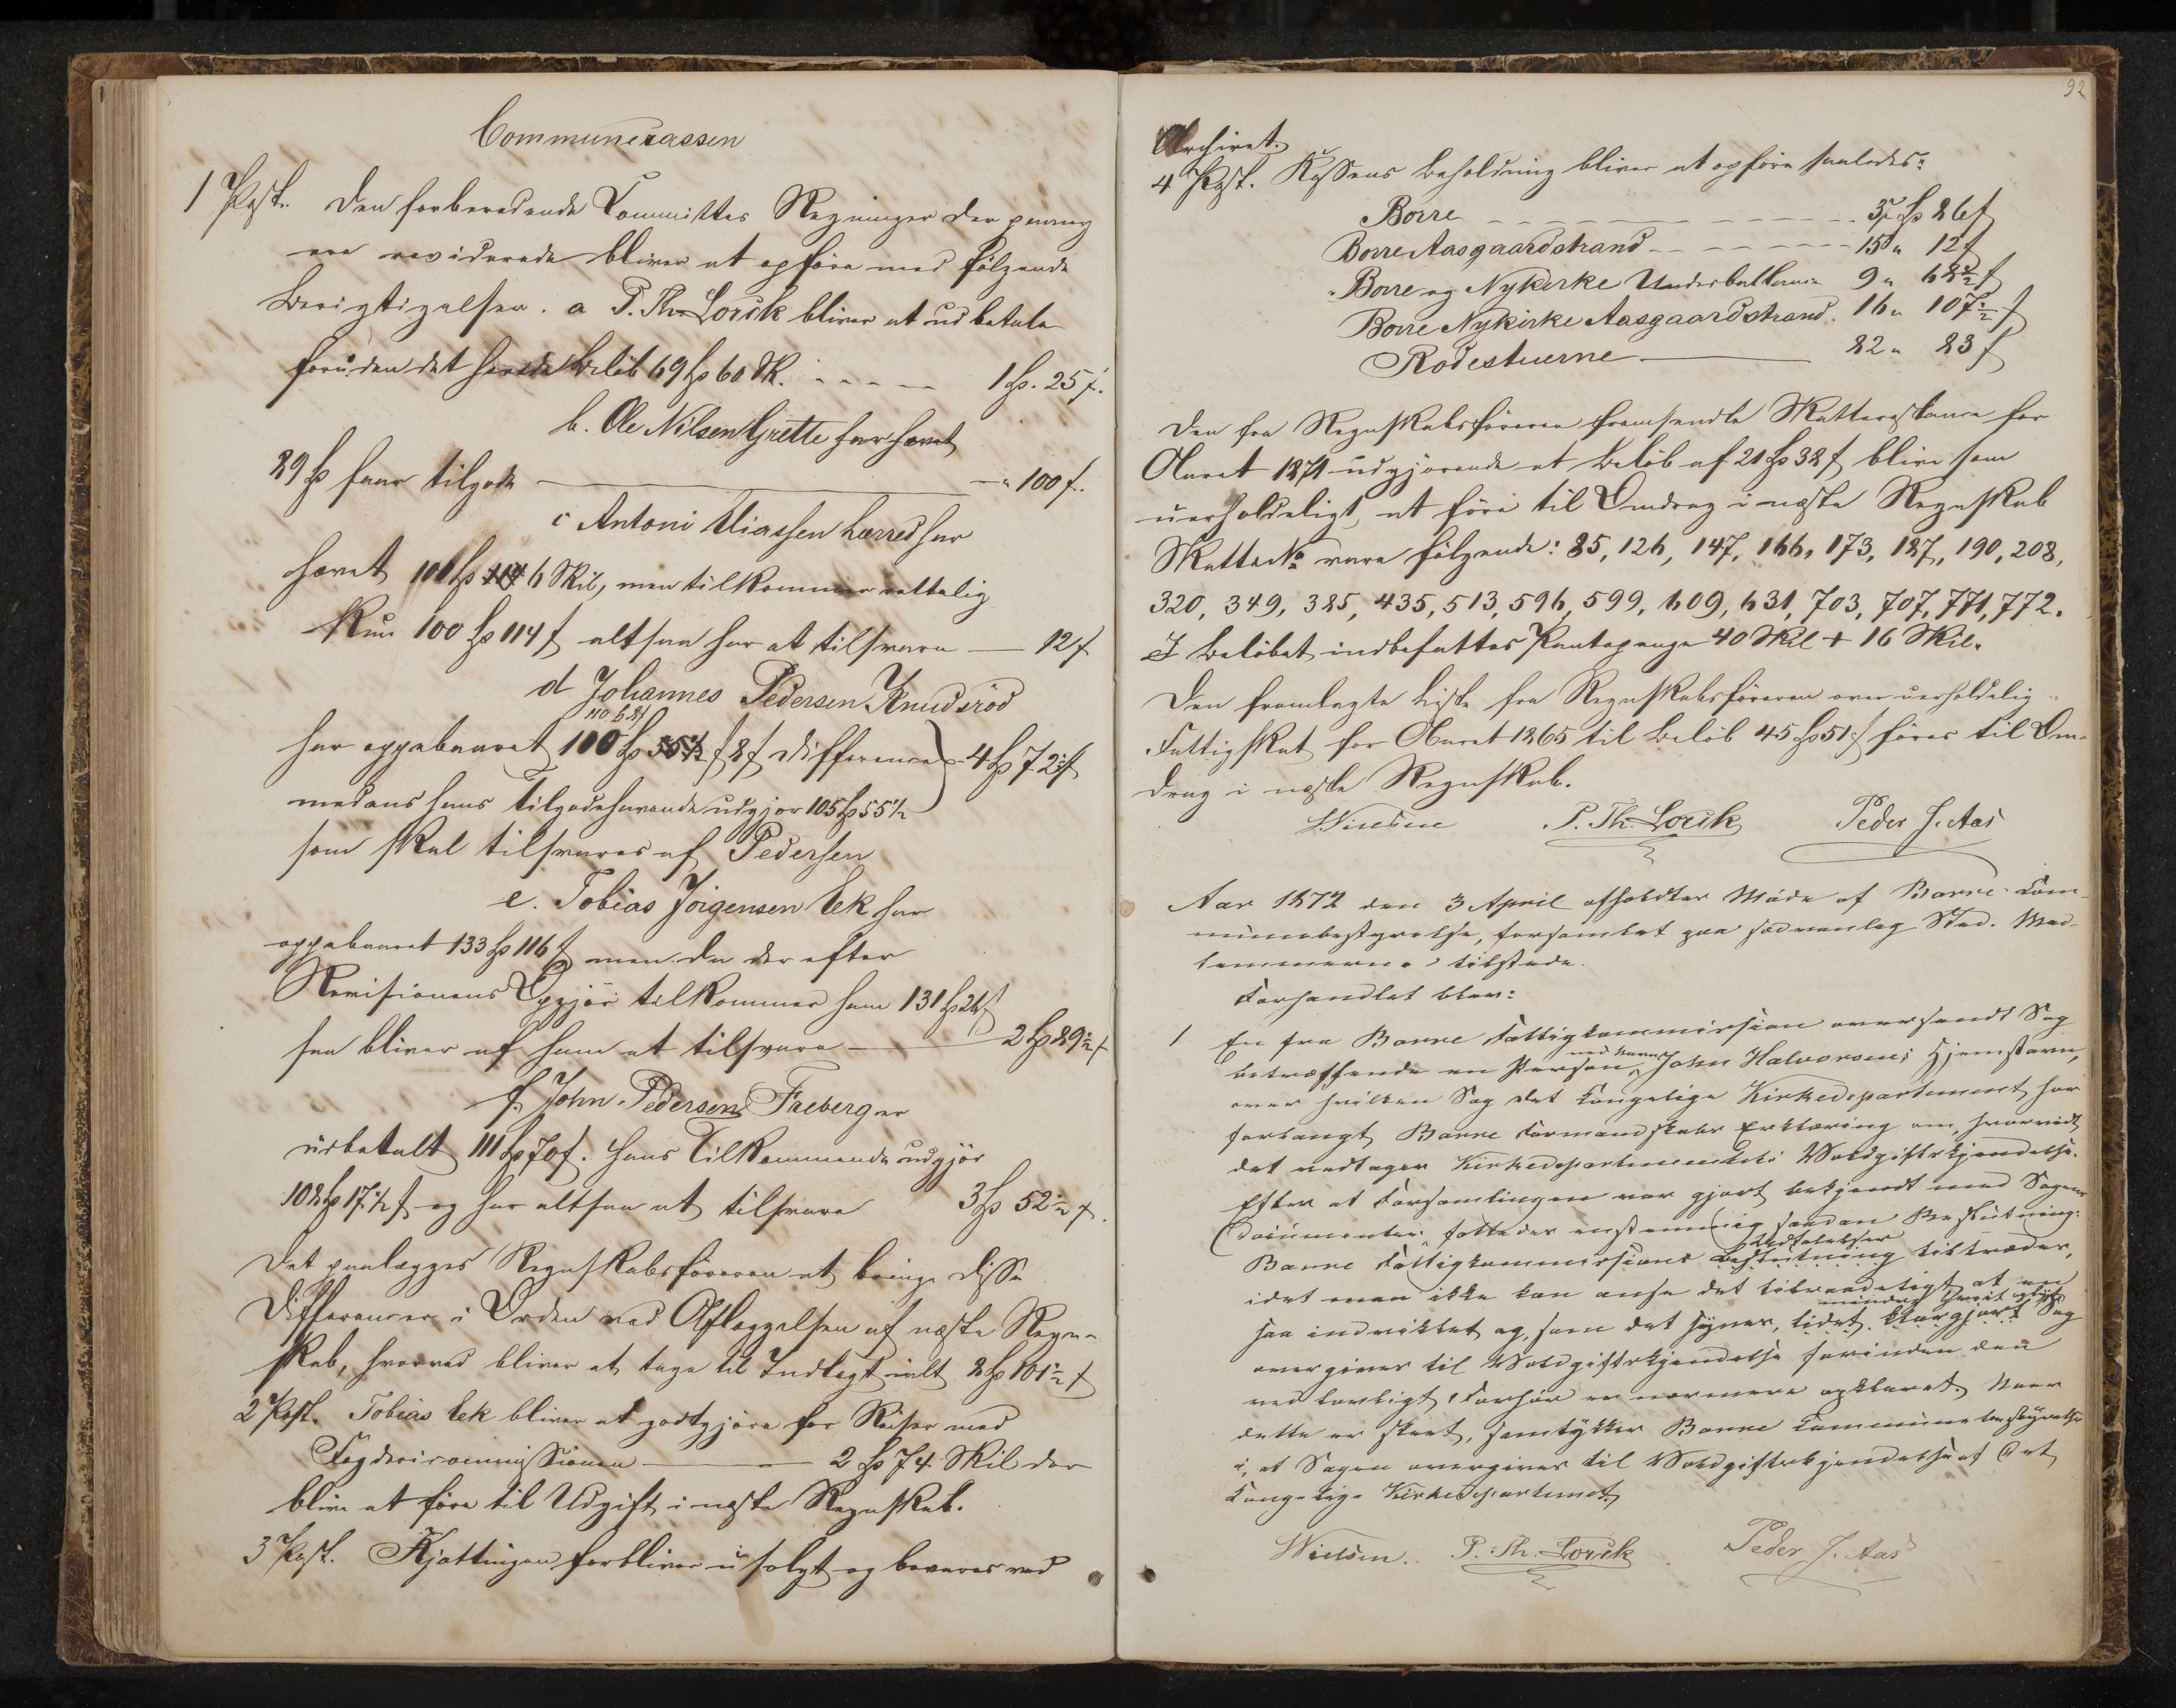 Communecassen
1 Post. Den forberedende Committes Regninger der paany
ere reviderede bliver at opføre med følgende
Berigtigelser. a P. Th. Lorck bliver at udbetale
foruden det hævede Beløb 69 Sp 60 Sk. - - - - - 1 Sp. 25 s.
b. Ole Nilsen Grette har hævet
89 Sp faar tilgode - " 100 s.
c Antoni Eliassen Lærred har
hævet 101 Sp 6 Skil, men tilkommer rettelig
kun 100 Sp 114 s altsaa har at tilsvare — 12 s
d Johannes Pedersen Knudsröd
har oppebaaret 110 Sp 8 s difference } 4 Sp 72½ s
medens hans Tilgodehavende udgjør 105 Sp 55½
som skal tilsvares af Pedersen
e. Tobias Jörgensen Eek har
oppebaaret 133 Sp 116 s men da der efter
Revisionens Opgjör tilkommer ham 131 Sp 26½ s
saa bliver af ham at tilsvare — 2 Sp 89½ s
f. John Pedersen Freberg er
udbetalt 111 Sp 70 s. Hans Tilkommende udgjör
108 Sp 17½ s og har altsaa at tilsvare 3 Sp 52½ s.
Det paalægges Regnskabsføreren at bringe disse
Differancer i Orden ved Aflæggelsen af næste Regn-
skab, hvorved bliver at tage til Indtægt ialt 8 Sp 101½ s
2 Post. Tobias Eek bliver at godtgjøre for Reiser med
Fogdericommissionen — 2 Sp 74 Skil der
blive at føre til Udgift i næste Regnskab.
3 Post. Kjættingen forbliver usolgt og bevares ved
92
Archivet.
4 Post. Kassens Beholdning bliver at opføre saaledes:
Borre - - - - - 37 Sp 86 s
Borre Aasgaardstrand - - - - - 15 " 12 s
Borre og Nykirke Underballance 9 " 68½ s
Borre Nykirke Aasgaardstrand. 16 " 107½ s
Rodestuerne — 82 " 83 s
Den fra Regnskabsføreren fremsendte Skatterestance for
Aaret 1871 udgjørende et Beløb af 21 Sp 38 s blive som
uerholdeligt, at føre til Omdrag i næste Regnskab
Skatte No vare følgende: 85, 126, 147, 166, 173, 187, 190, 208,
320, 349, 385, 435, 513, 596, 599, 609, 631, 703, 707, 771, 772.
I Beløbet indbefattes Pantepenge 40 Skil + 16 Skil.
Den fremlagte Liste fra Regnskabsføreren over uerholdelig
Fattigskat for Aaret 1865 til Beløb 45 Sp 51 s føres til Om-
drag i næste Regnskab.
Nielsen P. Th. Lorck Peder J. Aas
Aar 1872 den 3 April afholdtes Møde af Borre Com-
munebestyrelse, forsamlet paa sædvanlig Sted. Med-
lemmerne tilstede.
Forhandlet blev:
1 En fra Borre Fattigkommission oversendt Sag
betræffende en Person ved Navn John Halvorsens Hjemstavn,
over hvilken Sag det kongelige Kirkedepartement har
forlangt Borre Formandskabs Erklæring om, hvorvidt
det vedtager Kirkedepartementets Voldgiftskjendelse.
Efter at Forsamlingen var gjort bekjendt med Sagens
Documenter fattedes enstemmig saadan Beslutning:
Borre Fattigkommissions Beslutning Udtalelser tiltrædes,
idet man ikke kan anse det tilraadeligt at en
saa indviklet og, som det synes, lidet klargjort Sag
overgives til Voldgiftskjendelse forinden den
ved lovligt Forhør er nærmere opklaret. Naar
dette er skeet, samtykker Borre Communebestyrelse
i, at Sagen overgives til Voldgiftskjendelse af Det
Kongelige Kirkedepartement.
Nielsen. P. Th. Lorck Peder J. Aas